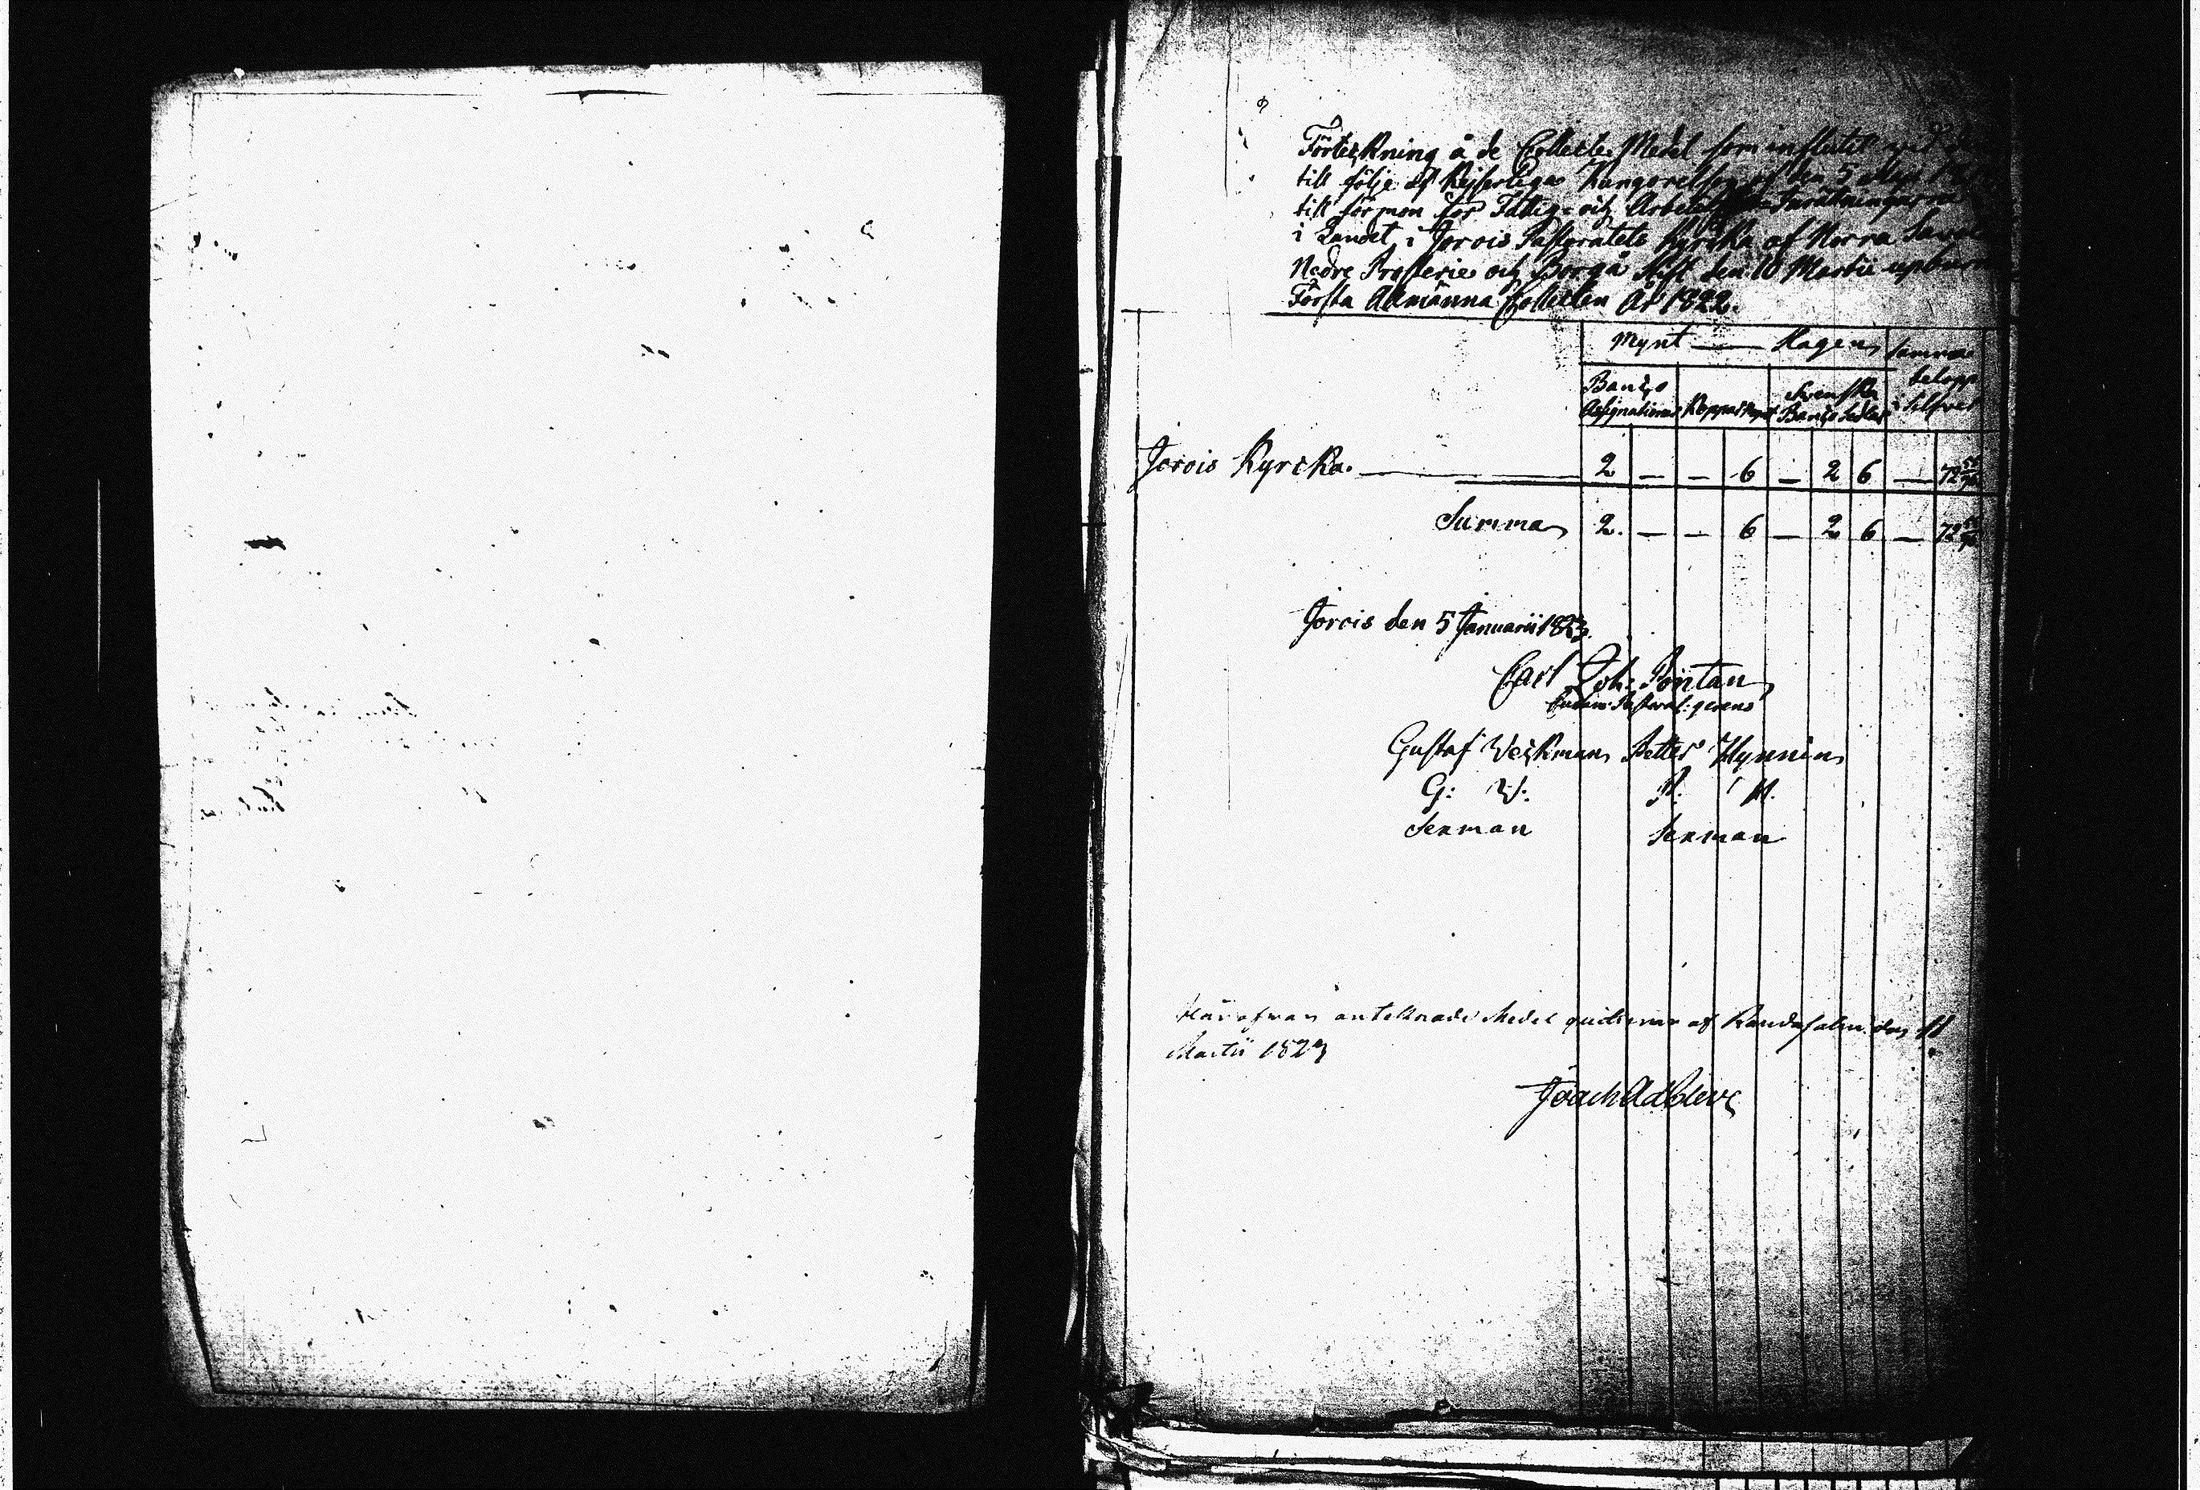 Förteckning å de Collecte Medel som influtit vid
till följe af Kejserliga Kungörelsen af den 5 Maji
till förmon för Fattig- och Arbets Inrättningarna
i Landet, i Jorois Pastoratets Kyrcka af Norra Savolax
Nedre Prosterie och Borgå Stift den 10 Martii upburne
Första Allmänna Collecten År 1822.
Mynt — Slagen Samma
Banco Assignationer Koppar Mynt Svenska Banco Sedlar belopp i Silfver
Jorois Kyrcka. 2 — — 6 — 2 6 — 72
Summa 2. — — 6 — 2 6 — 72
Jorois den 5 Januarii 1823.
Carl Joh: Pontan
Pastoral: gerens
Gustaf Weckman Petter Hynnin
G: W: P. H.
Sexman Sexman
Härofvan antecknade Medel quitteras af Randasalmi den 11
Martii 1823
Joach Ad Cleve